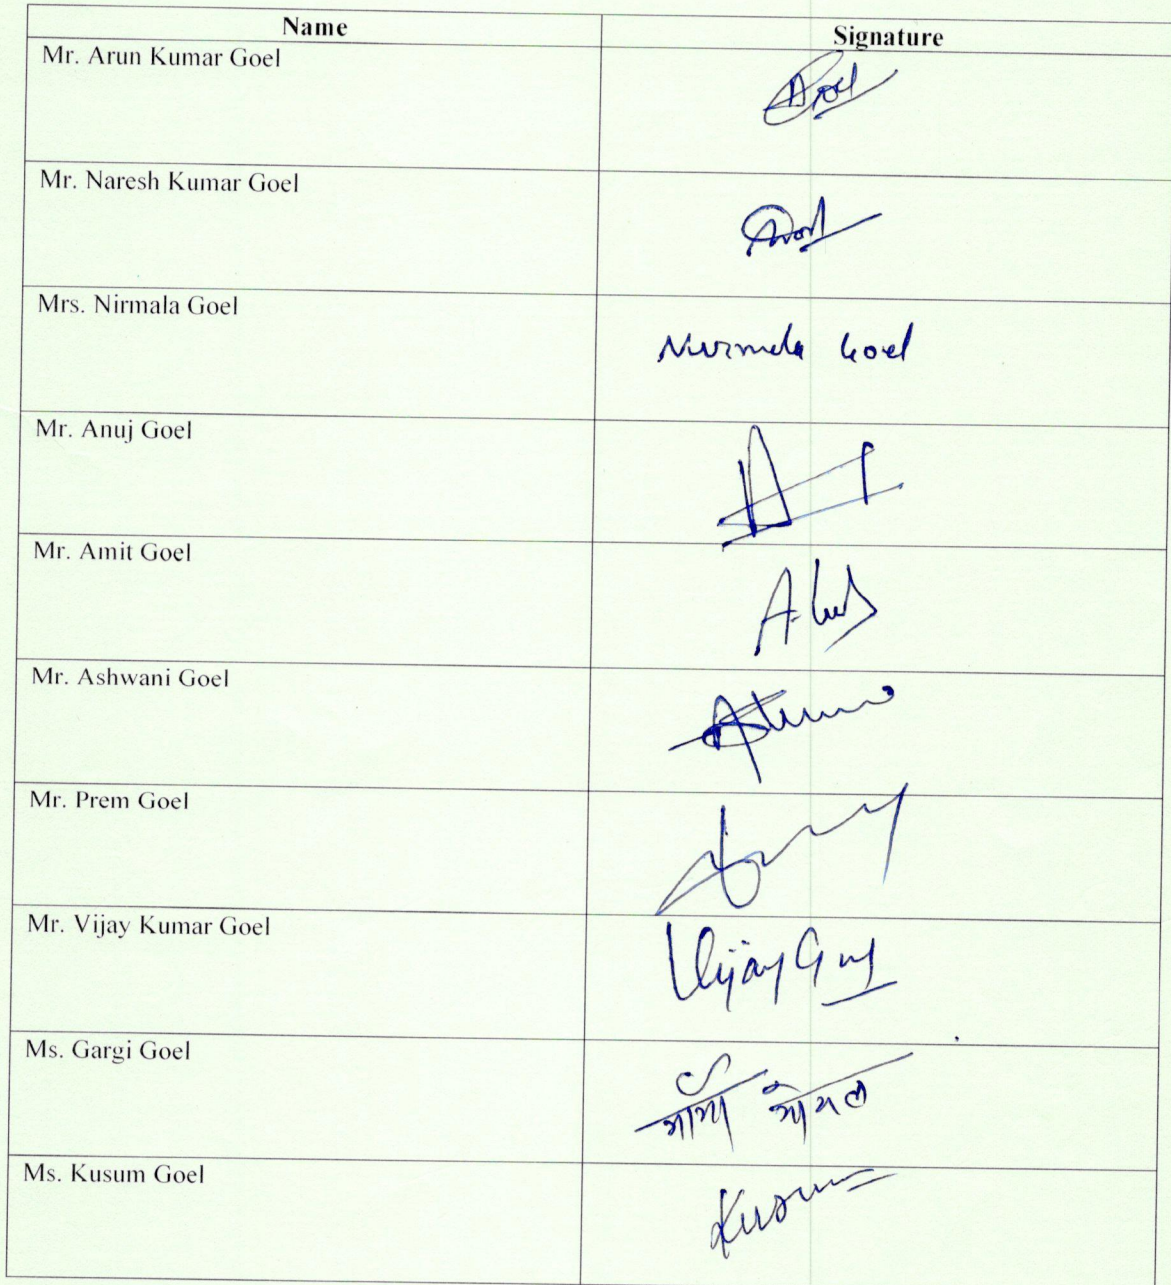 Name Signature
Mr. Arun Kumar Goel
Mr. Naresh Kumar Goel
Mrs. Nirmala Goel Nirmala Goel
Mr. Anuj Goel
Mr. Amit Goel
Mr. Ashwani Goel
Mr. Prem Goel
Mr. Vijay Kumar Goel Vijay
Ms. Gargi Goel गार्गी गोयल
Ms. Kusum Goel Kusum